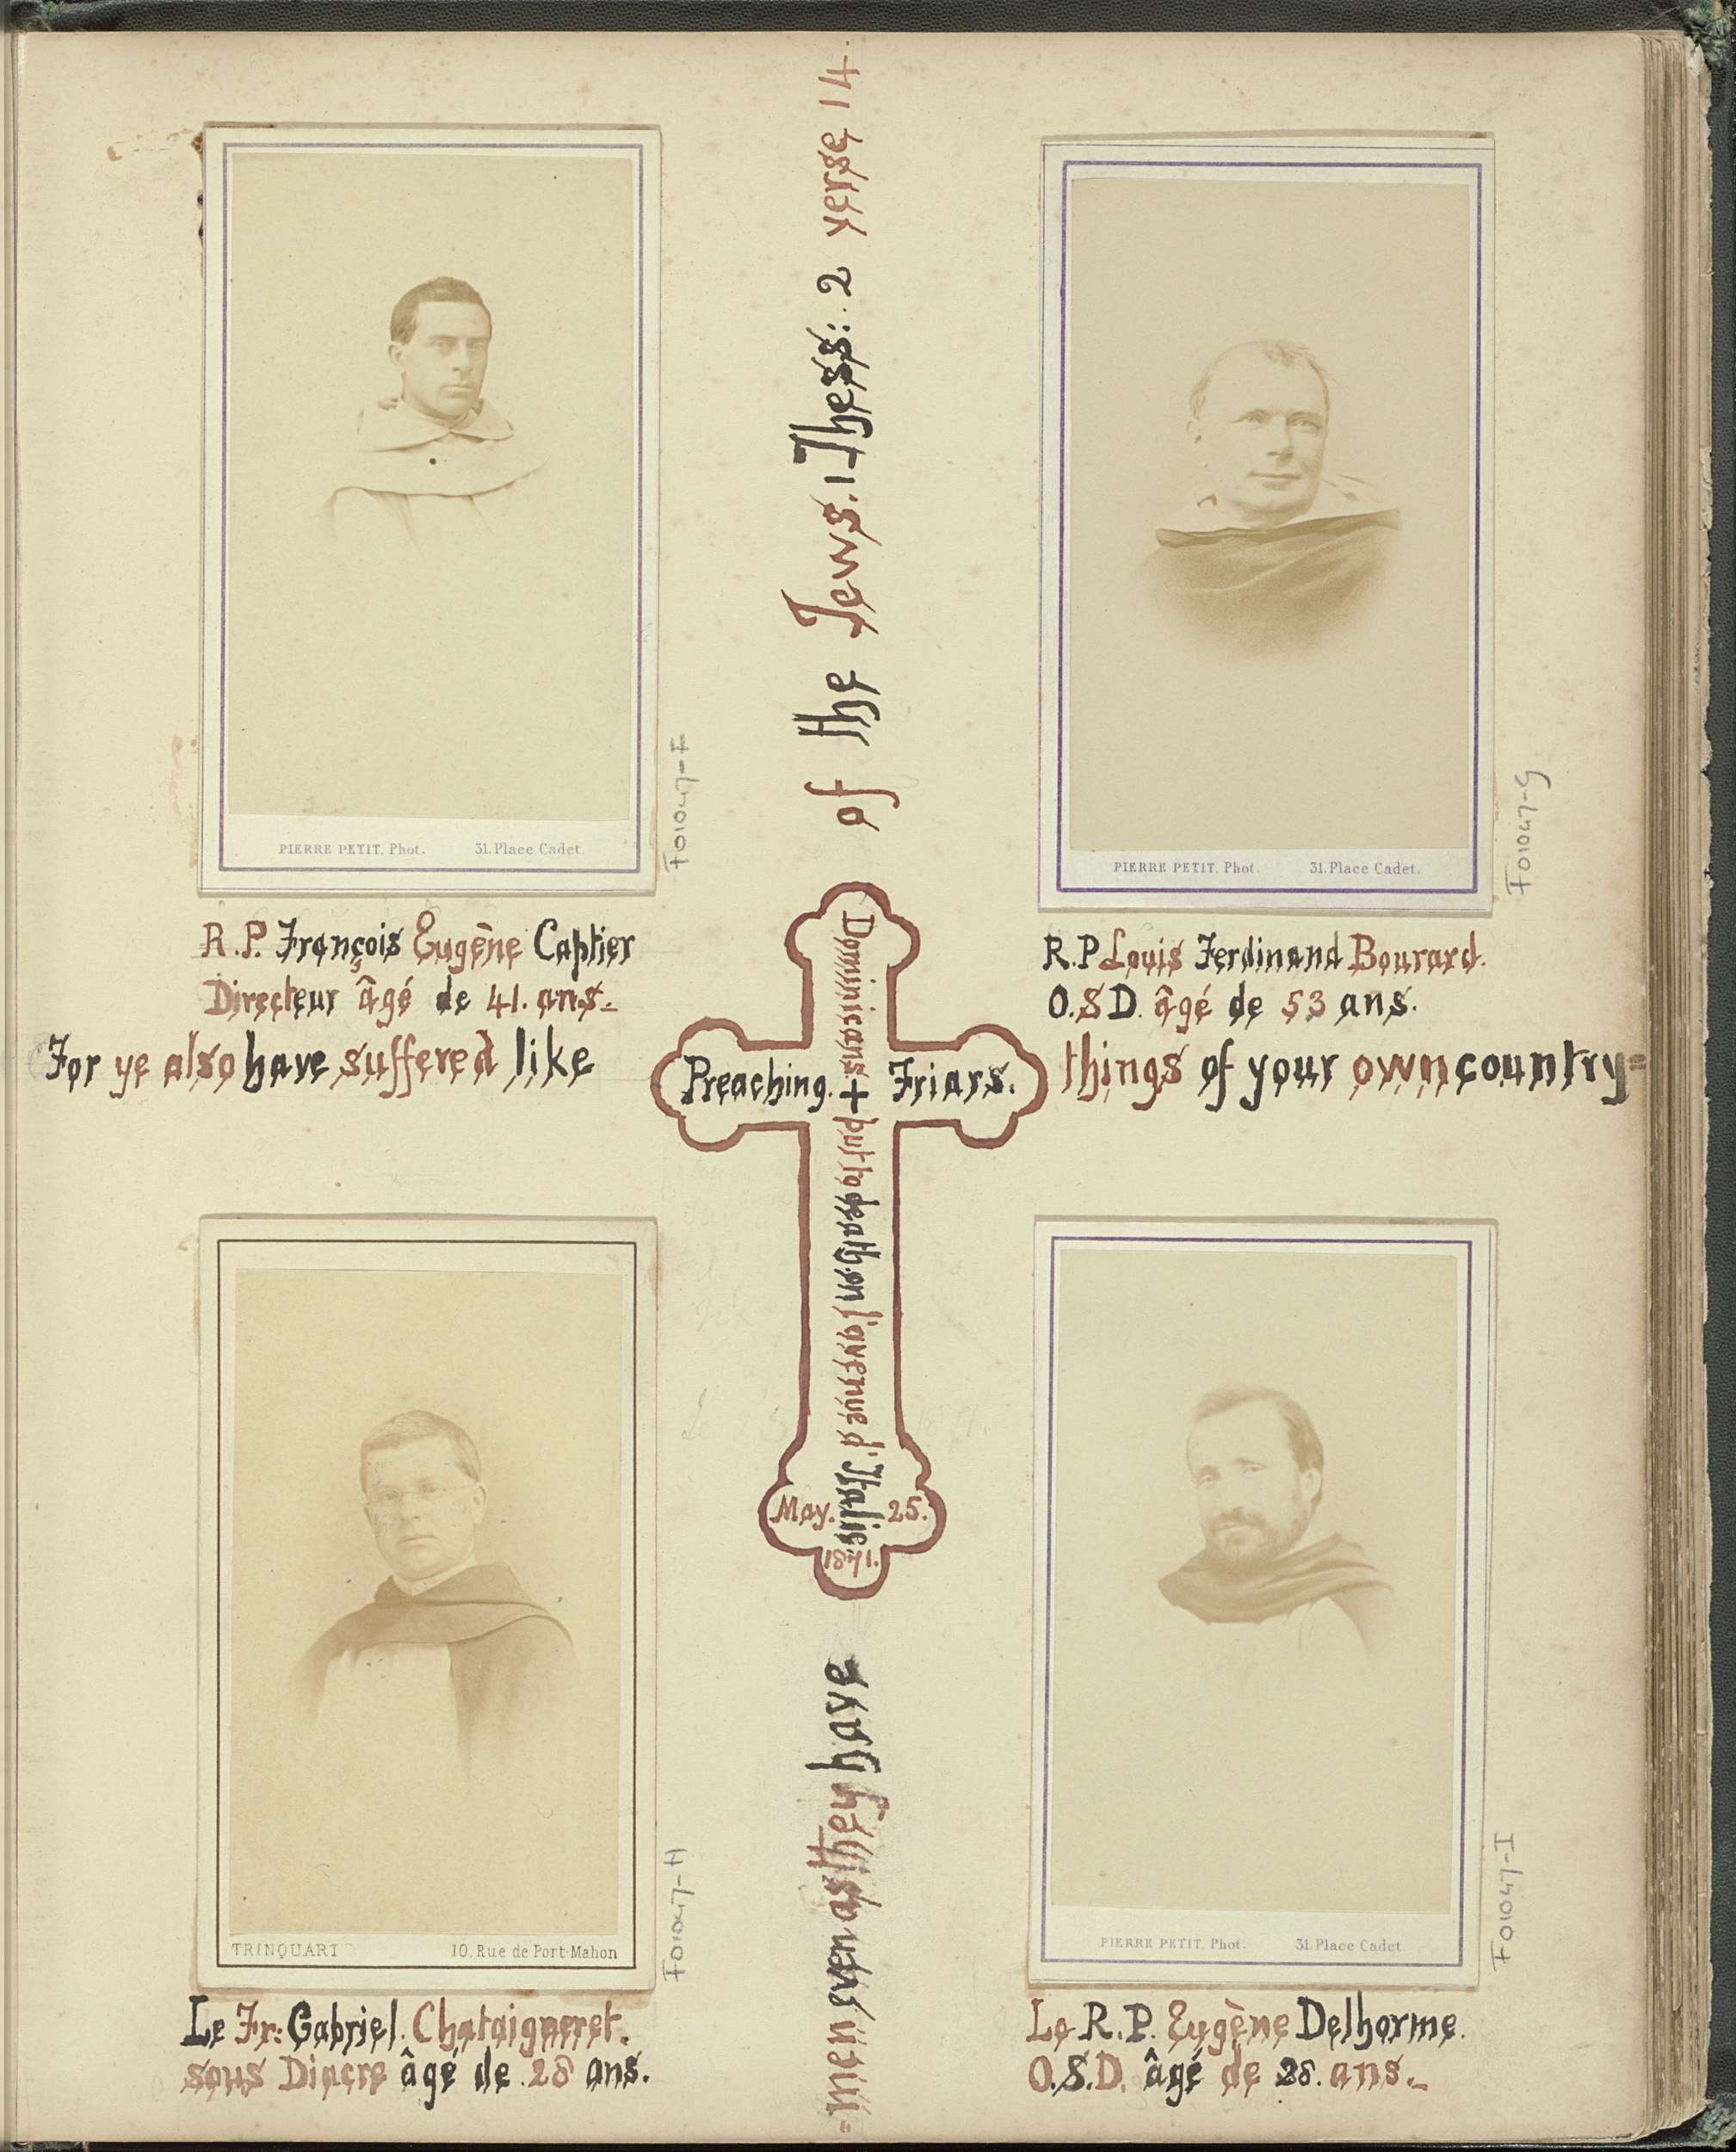 PIERRE PETIT, Phot. 31. Place Cadet.
F01047-F
R.P. François Eugène Captier
Directeur âgé de 41. ans.
PIERRE PETIT, Phot. 31. Place Cadet.
F01047-G
R.P Louis Ferdinand Bourard.
O.S.D. âgé de 53 ans.
For ye also have suffered like
things of your own country=
=men even as they have
of the Jews. 1 Thess: 2 verse 14
Preaching. + Friars.
Dominicans + put to death en l'avenue d'Italie.
May. 25.
1871.
TRINQUART 10. Rue de Port-Mahon
F01047-H
Le Fr: Gabriel. Chataigneret.
sous Diacre âgé de 28 ans.
PIERRE PETIT, Phot. 31. Place Cadet
F01047-I
Le R.P. Eugène Delhorme.
O.S.D. âgé de 28. ans.